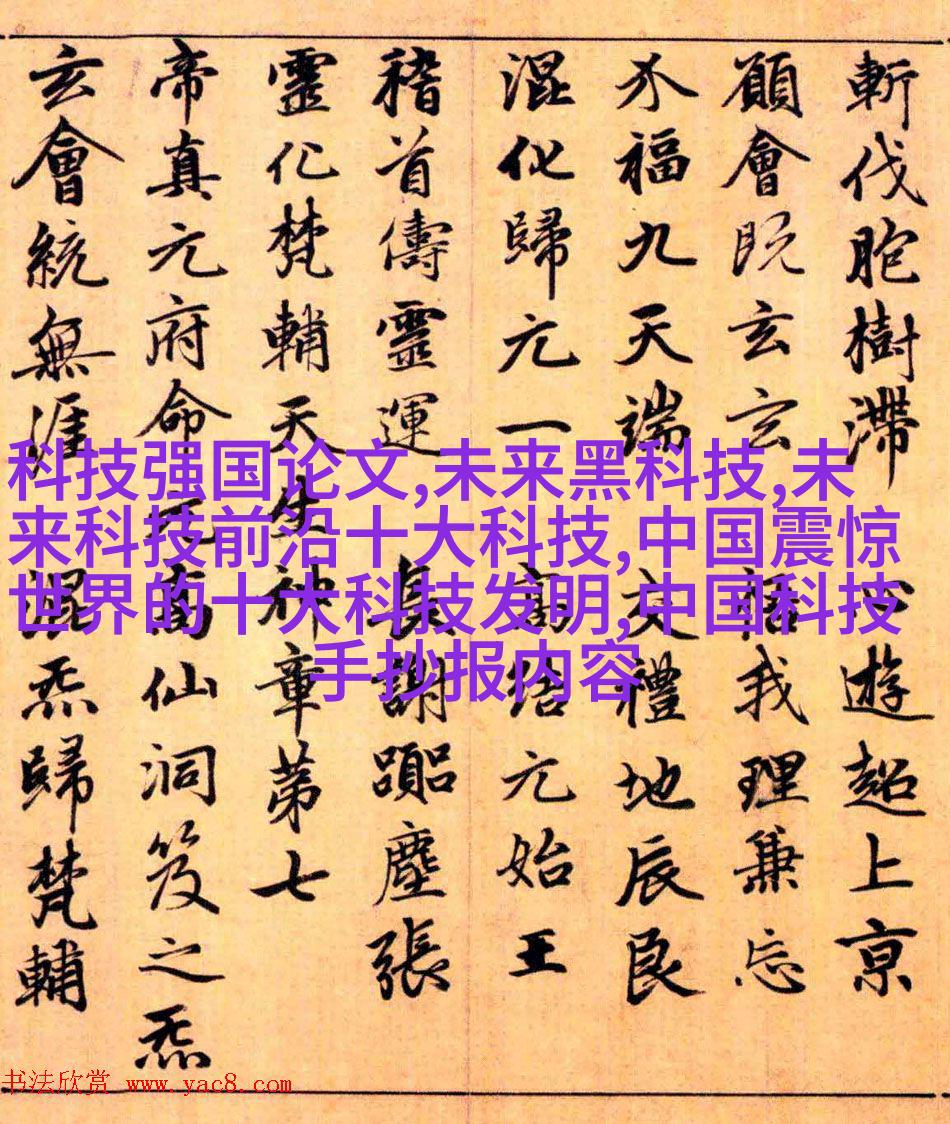 斬伐胞樹滯 心遊超上京
願會既玄玄 悟我理兼忘
水福九天端 交禮地辰良
混化歸元一 高結元始王
稽首儔靈運 長謝躡塵張
靈化梵輔天生神章第七
帝真元府命元高仙洞笈之炁
玄會統無涯 混炁歸梵輔
科技强国论文,未来黑科技,未
来科技前沿十大科技,中国震惊
世界的十大科技发明,中国科技
手抄报内容
书法欣赏 www.yac8.com